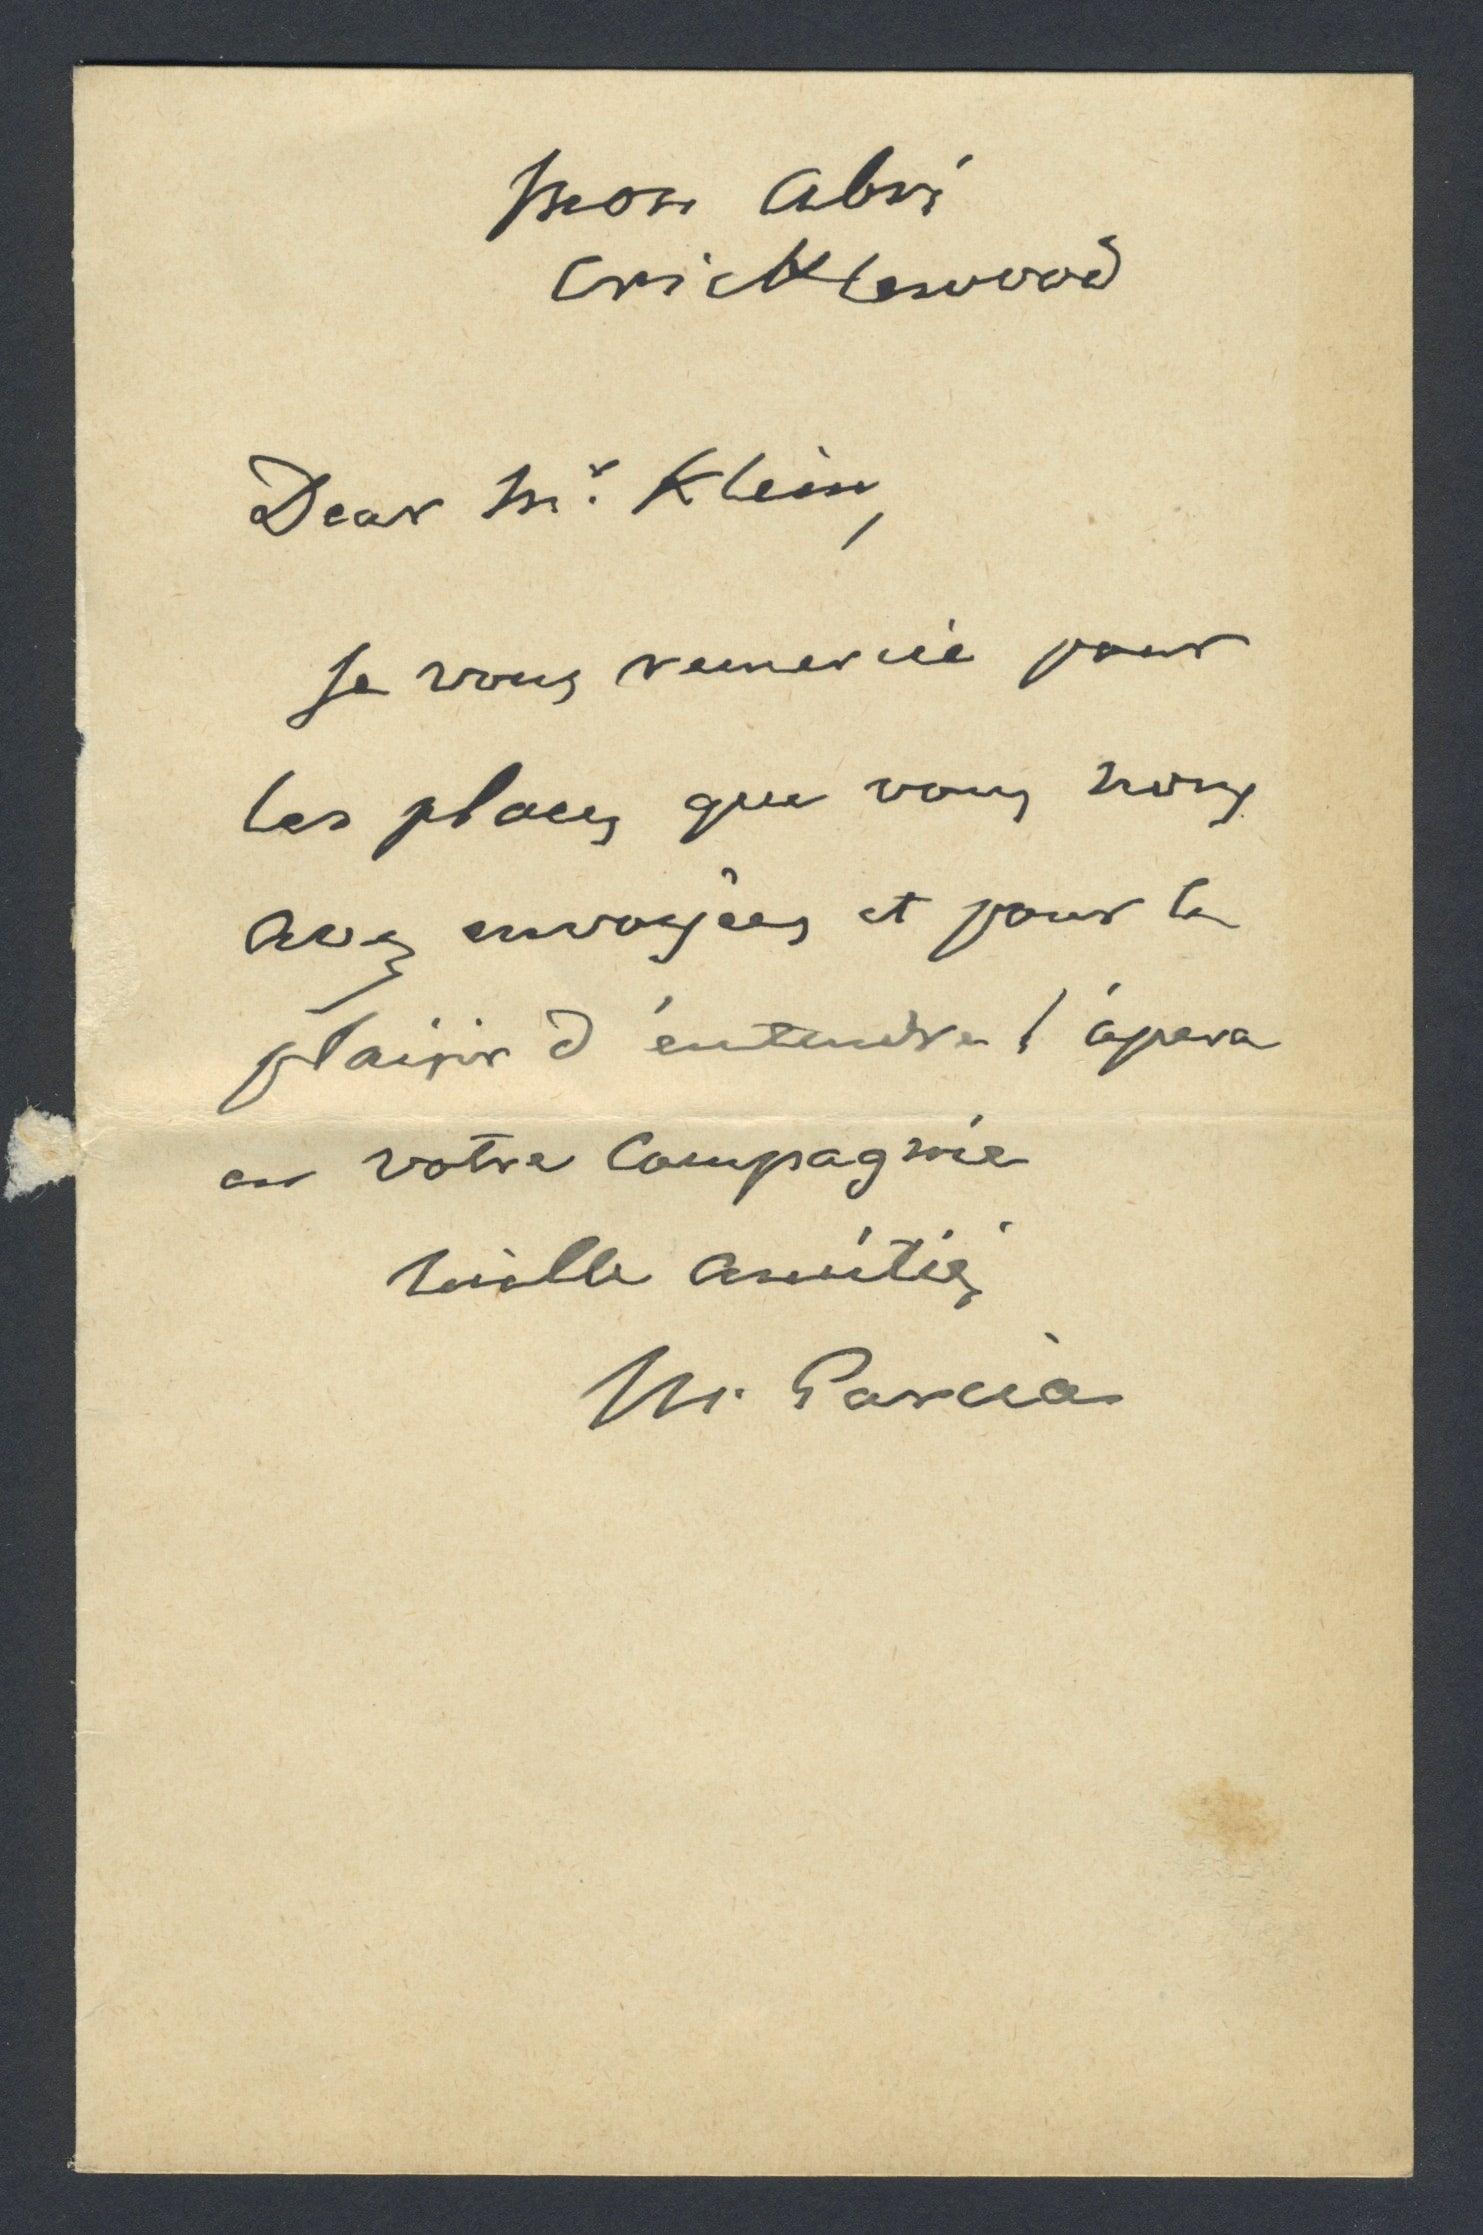 Mon Abri
Cricklewood
Dear Mr. Klein,
Je vous remercie pour
les places que vous nous
avez envoyées et pour le
plaisir d'entendre l'opera
en votre Compagnie
Mille Amitiés
M. Garcia